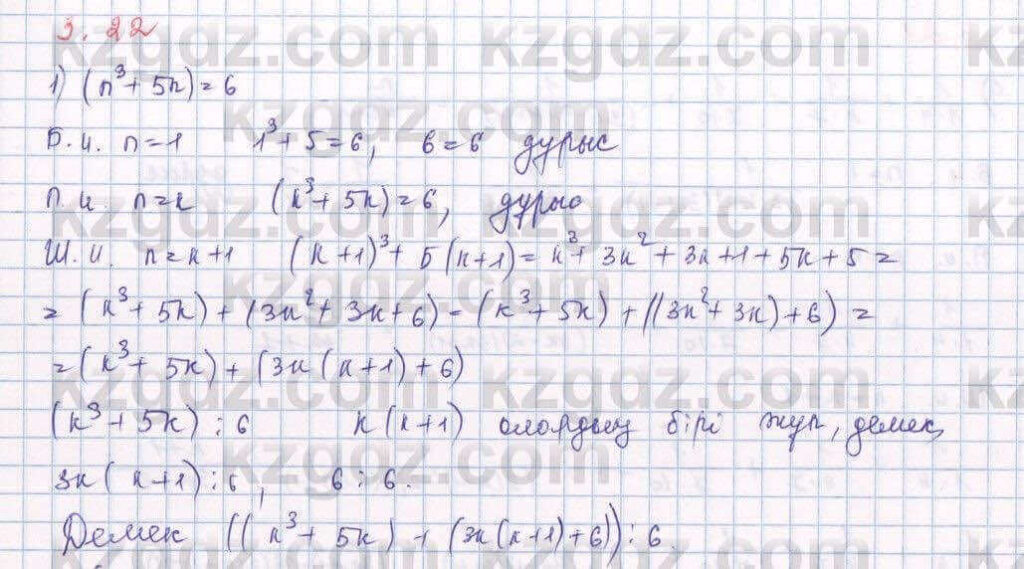 3.22
1) (n³+5n)=6
Б.и. n=1 1³+5=6, 6=6 дұрыс
П.и. n=k (k³+5k)=6, дұрыс
Ш.и. n=k+1 (k+1)³+5(k+1)=k³+3k²+3k+1+5k+5=
=(k³+5k)+(3k²+3k+6)=(k³+5k)+((3k²+3k)+6)=
=(k³+5k)+(3k(k+1)+6)
(k³+5k):6 k(k+1) олардың бірі жұп, демек,
3k(k+1):6, 6:6.
Демек ((k³+5k)+(3k(k+1)+6)):6.
kzgdz.com